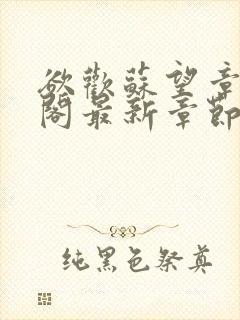 欲歡蘇望章
閣最新章節
純黑色祭奠